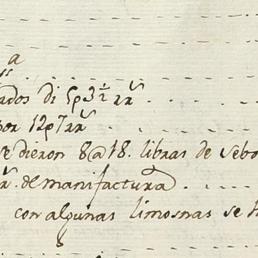 a
ados di 5p3½ rr.s
por 12p7rr.s
se dieron 8@18. libras de sebo
r.s de manifactura
con algunas limosnas se h